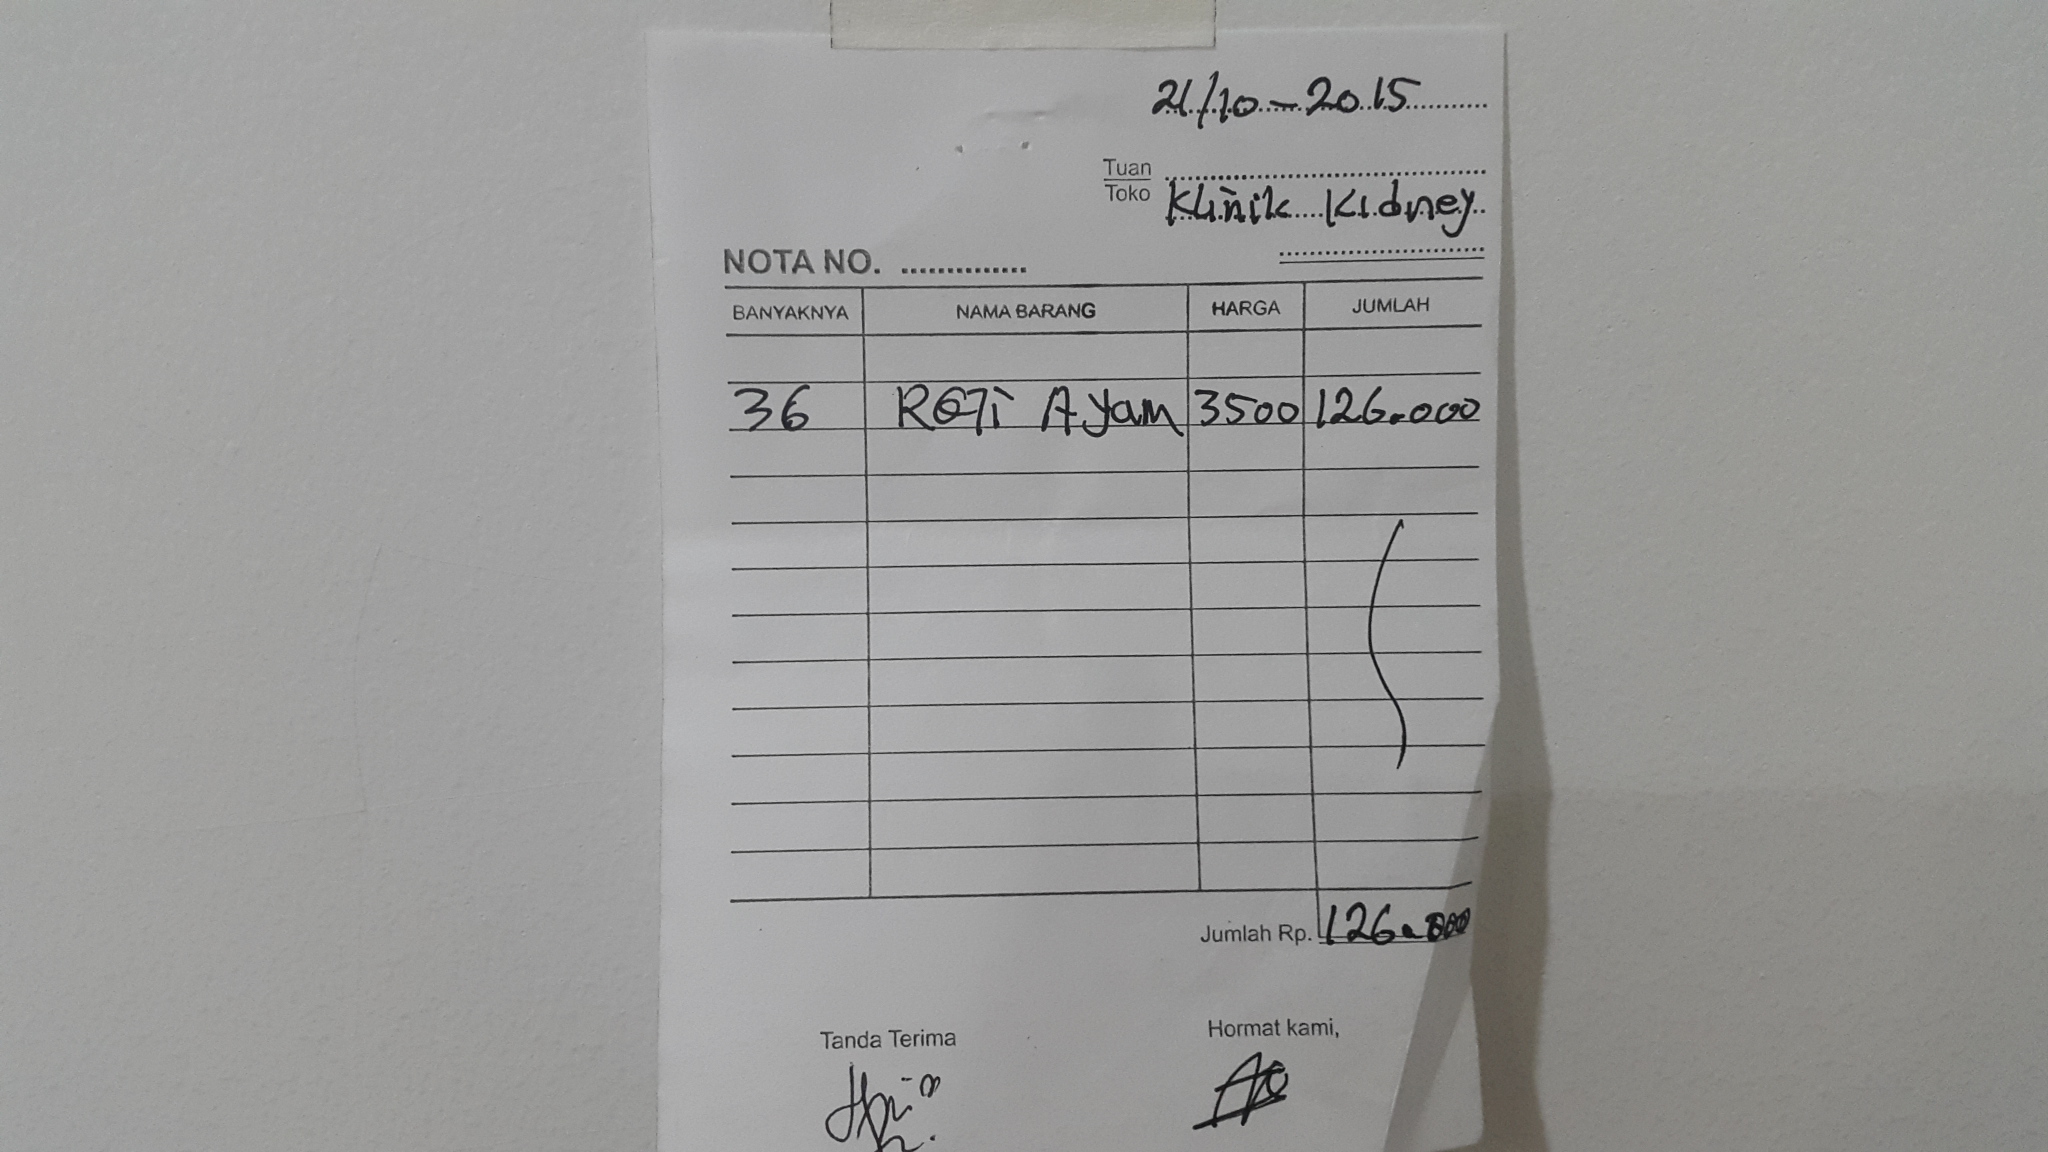 21/10-2015
Tuan
Toko Klinik Kidney
NOTA NO. ..............
BANYAKNYA NAMA BARANG HARGA JUMLAH
36 ROTi AYam 3500 126.000
Jumlah Rp. 126.000
Tanda Terima Hormat kami,